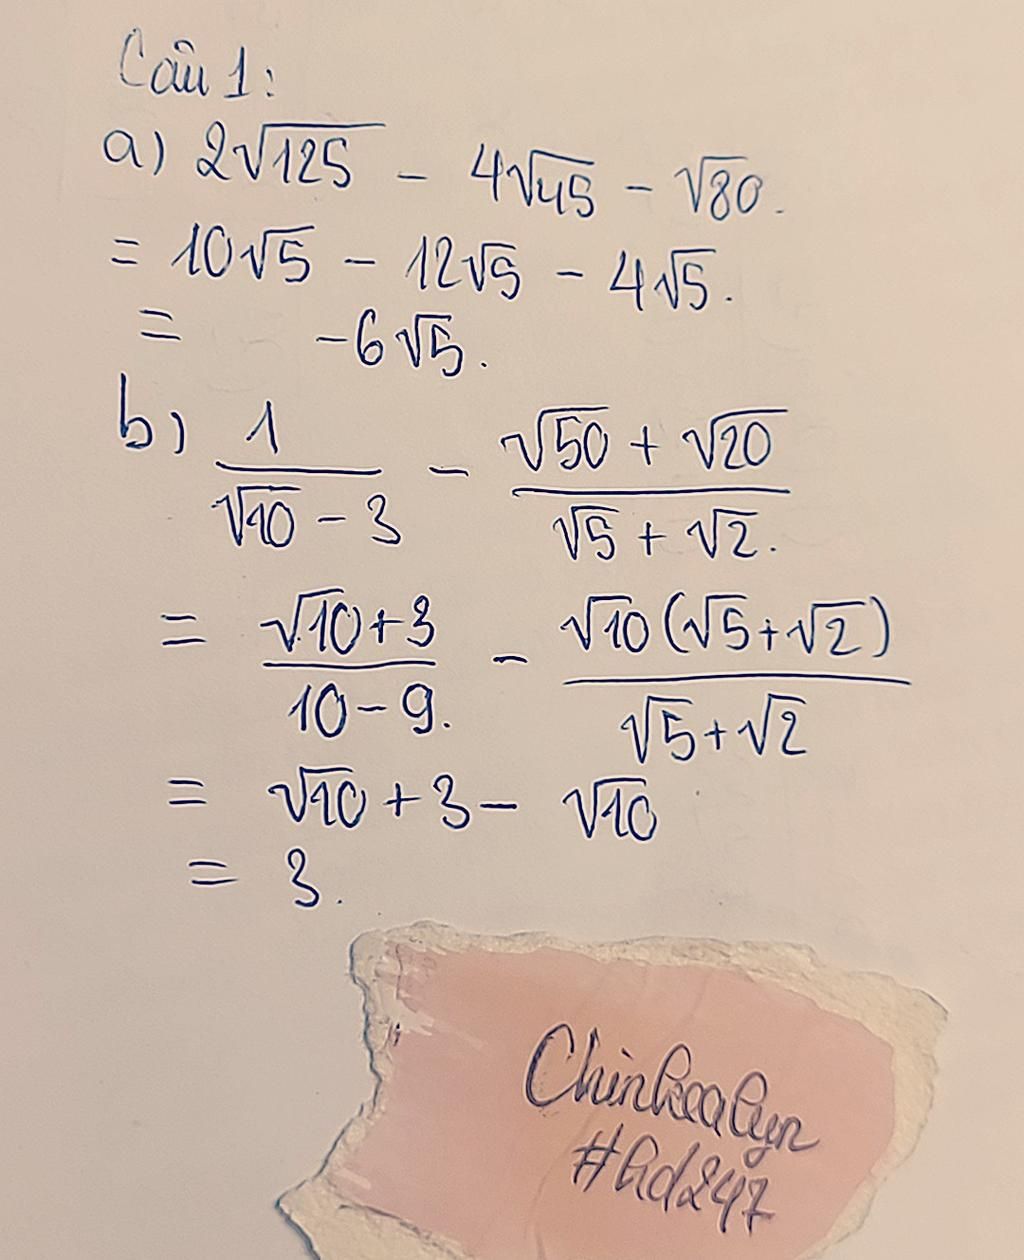 Câu 1:
a) 2√125 - 4√45 - √80.
= 10√5 - 12√5 - 4√5.
= -6√5.
b) 1/(√10 - 3) - (√50 + √20)/(√5 + √2).
= (√10+3)/(10-9). - √10(√5+√2)/(√5+√2)
= √10 + 3 - √10
= 3.
Chinkealyn
#hd247